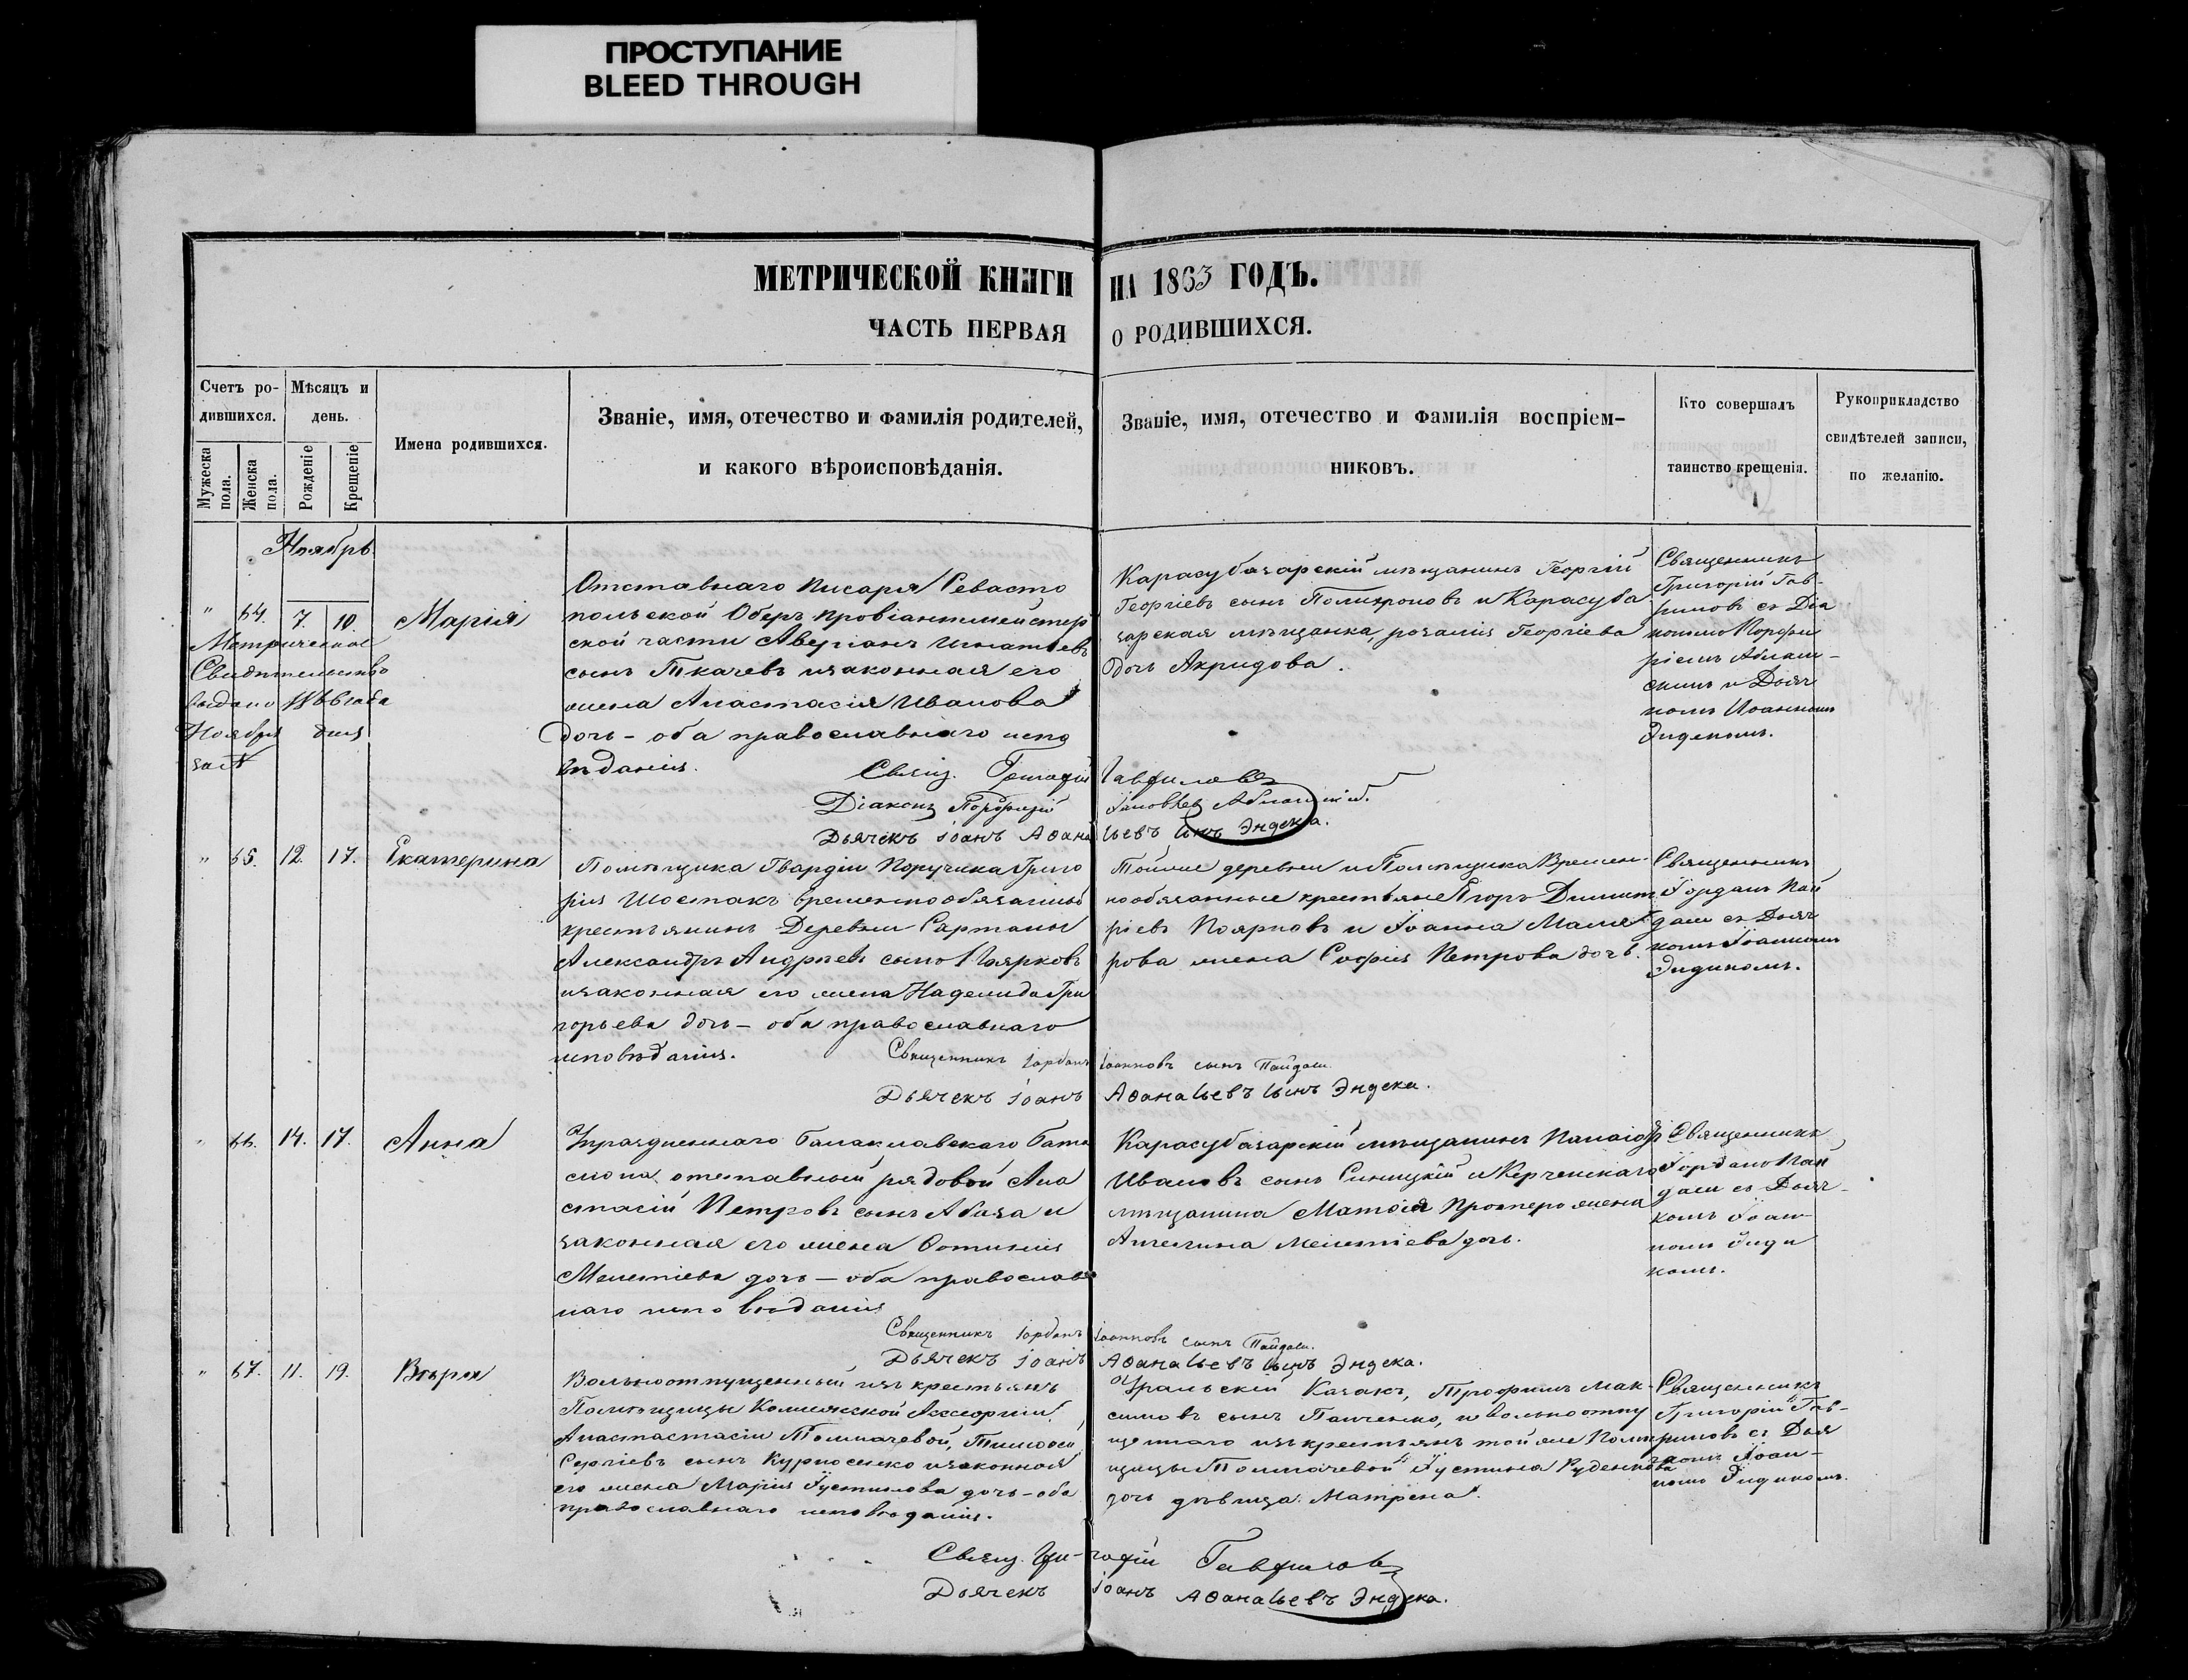 ПРОСТУПАНИЕ
BLEED THROUGH
МЕТРИЧЕСКОЙ КНИГИ НА 1863 ГОДЪ.
ЧАСТЬ ПЕРВАЯ О РОДИВШИХСЯ.
Счетъ ро-
дившихся.
Мужеска пола.
Женска пола.
Мѣсяцъ и
день.
Рожденіе
Крещеніе
Имена родившихся.
Званіе, имя, отечество и фамилія родителей,
и какого вѣроисповѣданія.
Званіе, имя, отечество и фамилія воспріем-
никовъ.
Кто совершалъ
таинство крещенія.
Рукоприкладство
свидѣтелей записи,
по желанію.
Ноябрь
" 64. 7. 10. Марія
Метрическое
Свидѣтельство
выдано
Ноября дня
за №
Отставнаго писаря Севасто
польской Оберъ провіантмейстер
ской части Аверіанъ Игнатьевъ
сынъ Ткачевъ и законная его
жена Анастасія Иванова
дочь - оба православнаго испо
вѣданія.
Карасубазарскій мѣщанинъ Георгій
Георгіевъ сынъ Полихроновъ и Карасуба
зарская мѣщанка, розалія Георгіева
дочь Акридова.
Священникъ
Григорій Гав-
риловъ съ Діа
кономъ Порфи
ріемъ
скимъ и Дьяч
комъ Иоанномъ
Эндекомъ.
Свящ. Григорій Гавриловъ
Діаконъ Порфирій
Дьячекъ Іоанъ Аѳанасьевъ сынъ Эндека.
" 65. 12. 17. Екатерина
Помѣщика Гвардіи Поручика Григо
рія Шостакъ временнообязанный
крестьянинъ Деревни Сартаны
Александръ Андреевъ сынъ Поярковъ
и законная его жена Надежда Гри
горьева дочь - оба православнаго
исповѣданія.
Тойже деревни и Помѣщика Времен-
нообязанные крестьяне Егоръ Димит
ріевъ Поярковъ и Іоанна
рова жена Софія Петрова дочь.
Священникъ
Іорданъ Пай
даси съ Дьяч
комъ Іоанномъ
Эндекомъ.
Священникъ Іорданъ Іоанновъ сынъ Пайдаси.
Дьячекъ Іоанъ Аѳанасьевъ сынъ Эндека.
" 66. 14. 17. Анна
Упраздненнаго Балаклавскаго Бата
ліона отставный рядовой Ана
стасій Петровъ сынъ Абаза и
законная его жена Фотинія
Мелетіева дочь - оба православ
наго исповѣданія
Карасубазарскій мѣщанинъ Панаіотъ
Ивановъ сынъ Синицкій и Керченскаго
мѣщанина Матѳія жена
Ангелина Мелетіева дочь.
Священникъ
Іорданъ Пай
даси съ Дьяч-
комъ Іоан-
номъ Энде
комъ.
Священникъ Іорданъ Іоанновъ сынъ Пайдаси.
Дьячекъ Іоанъ Аѳанасьевъ сынъ Эндека.
" 67. 11. 19. Вѣра
Вольноотпущенный изъ крестьянъ
Помѣщицы
Толмачевой, Тимоѳей
Сергіевъ сынъ Курносенко и законная
его жена Марія Іустинова дочь - оба
православнаго исповѣданія.
Уральскій Казакъ, Трофимъ Мак-
симовъ сынъ Панченко, и вольноотпу
щеннаго изъ крестьянъ той же Помѣ
щицы Толмачевой Іустина Руденкова
дочь дѣвица Матрена.
Священникъ
Григорій Гав-
риловъ съ Дья
чкомъ Іоан-
номъ Эндекомъ.
Свящ. Григорій Гавриловъ
Дьячекъ Іоанъ Аѳанасьевъ Эндека.